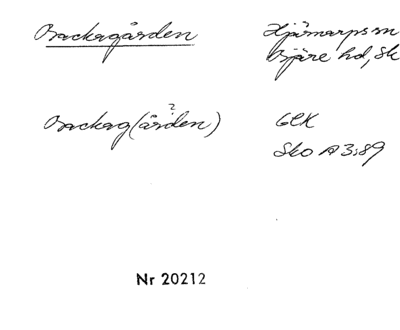 Backagården Hjärnarps sn
Bjäre hd, Sk
?
Backag(ården) GEK
Sko A3:89
Nr 20212